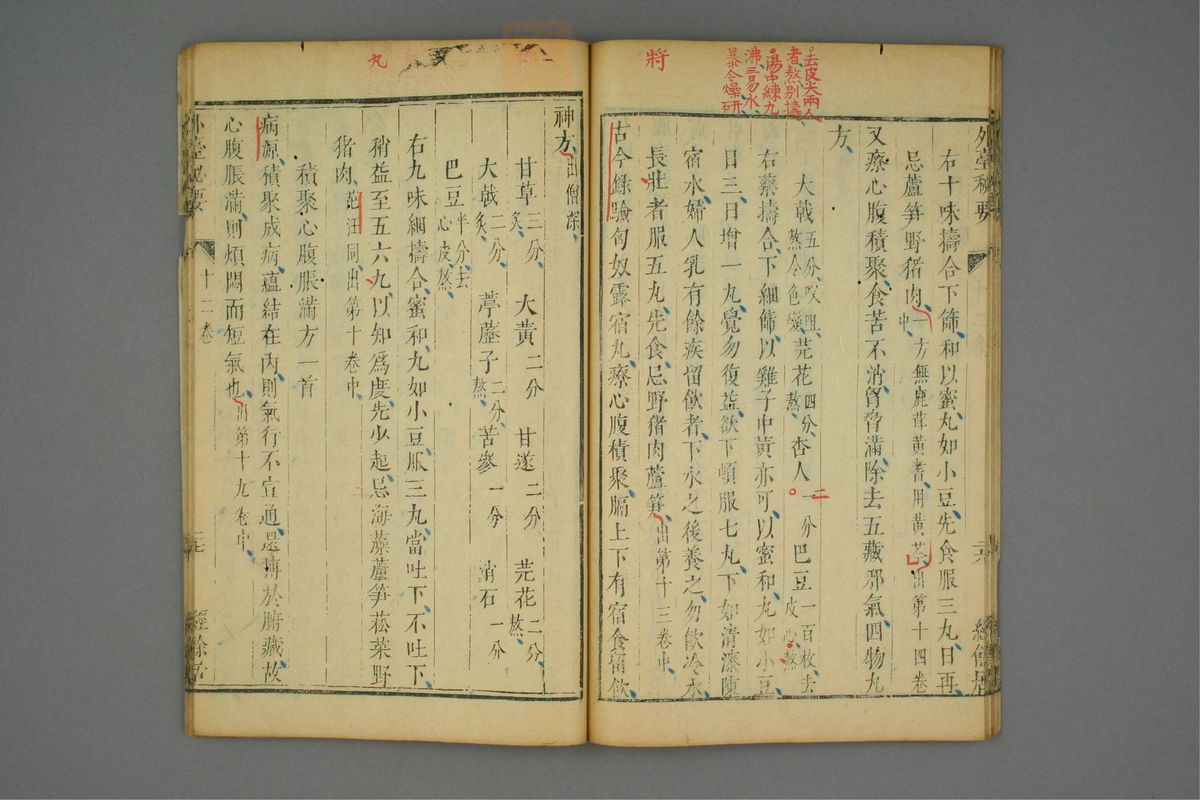 外臺秘要
右十味擣合下篩和以蜜丸如小豆先食服三丸日再
忌蘆笋野猪肉一方無鹿茸黃耆用黃芩出第十四卷中
又療心腹積聚食苦不消胷脅滿除去五藏邪氣四物丸
方
大戟五分㕮咀熬令色變 芫花四分熬 杏人一分 巴豆一百枚去皮心熬
右藥擣合下細篩以雞子中黃亦可以蜜和丸如小豆
日三日增一丸覺勿復益欲下頓服七丸下如清漆陳
宿水婦人乳有餘疾留飲者下水之後養之勿飲冷水
長壯者服五丸先食忌野猪肉蘆笋出第十三卷中
古今錄驗匈奴露宿丸療心腹積聚膈上下有宿食留飲
去皮尖兩人
者熬別擣
湯中練九
沸易水
暴令燥研
將
二
神方出僧深
甘草三分炙 大黃二分 甘遂二分 芫花二分熬
大戟二分炙 葶藶子二分熬 苦參一分 消石一分
巴豆半分去心皮熬
右九味細擣合蜜和丸如小豆服三丸當吐下不吐下
稍益至五六丸以知爲度先少起忌海藻蘆笋菘菜野
猪肉范汪同出第十卷中
積聚心腹脹滿方一首
病源積聚成病蘊結在內則氣行不宣通還搏於腑藏故
心腹脹滿則煩悶而短氣也出第十九卷中
外臺秘要 十二卷 經餘居
丸